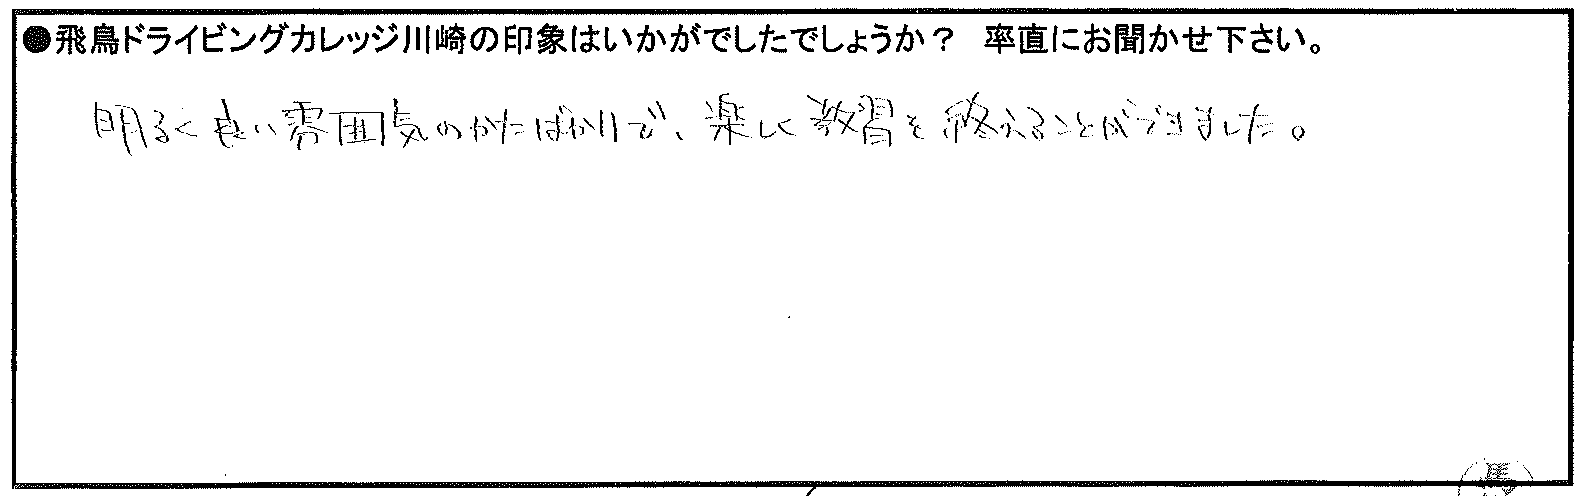 ●飛鳥ドライビングカレッジ川崎の印象はいかがでしたでしょうか？ 率直にお聞かせ下さい。
明るく良い雰囲気のかたばかりで、楽しく教習を終えることができました。